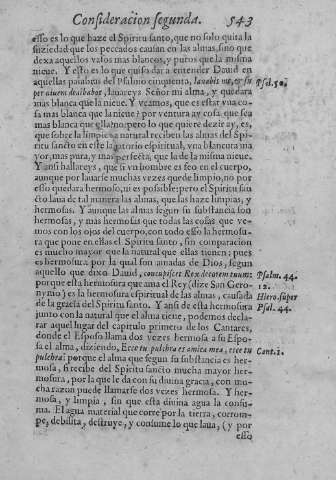 Consideracion segunda. 543
esso es lo que haze el Spiritu santo, que no solo quita la
suziedad que los peccados causan en las almas, sino que
dexa aquellos valos mas blancos, y puros que la misma
nieue. Y esto es lo que quiso dar a entender Dauid en
aquellas palabras del Psalmo cinquenta, lauabis me, & su
per niuem dealbabor, lauareys Señor mi alma, y quedara Psal. 50.
mas blanca que la nieue. Y veamos, que es estar vna cosa
mas blanca que la nieue? por ventura ay cosa que sea
mas blanca que ella? no: pero lo que quiere dezir ay, es,
que sobre la limpieza natural reciben las almas del Spi-
ritu sancto en este lauatorio espiritual, vna blancura ma
yor, mas pura, y mas perfecta, que la de la misma nieue.
Y ansi hallareys, que si vn hombre es feo en el cuerpo,
aunque por lauarse muchas vezes quede limpio, no por
esso quedara hermoso, ni es possible: pero el Spiritu san
cto laua de tal manera las almas, que las haze limpias, y
hermosas. Y aunque las almas segun su substancia son
hermosas, y mas hermosas que todas las cosas que ve-
mos con los ojos del cuerpo, con todo esso la hermosu-
ra que pone en ellas el Spiritu santo, sin comparacion
es mucho mayor que la natural que ellas tienen; pues
es hermosura por la qual son amadas de Dios, segun
aquello que dixo Dauid, concupiscet Rex decorem tuum: Psalm. 44.
por que esta hermosura que ama el Rey (dize San Gero- 12.
nymo) es la hermosura espiritual de las almas, causada Hiero. super
de la gracia del Spiritu santo. Y ansi de esta hermosura Psal. 44.
junto con la natural que el alma tiene, podemos decla-
rar aquel lugar del capitulo primero de los Cantares,
donde el Esposo llama dos vezes hermosa a su Espo-
sa el alma, diziendo, Ecce tu pulchra es amica mea, ecce tu Cant. 1.
pulchra: porque el alma que segun su substancia es her-
mosa, si recibe del Spiritu sancto mucha mayor her-
mosura, por la que le da con su diuina gracia, con mu-
cha razon puede llamarse dos vezes hermosa. Y her-
mosa, y limpia, sin que esta diuina agua la consu-
ma. El agua material que corre por la tierra, corrom-
pe, debilita, destruye, y consume lo que laua, (y por
esso